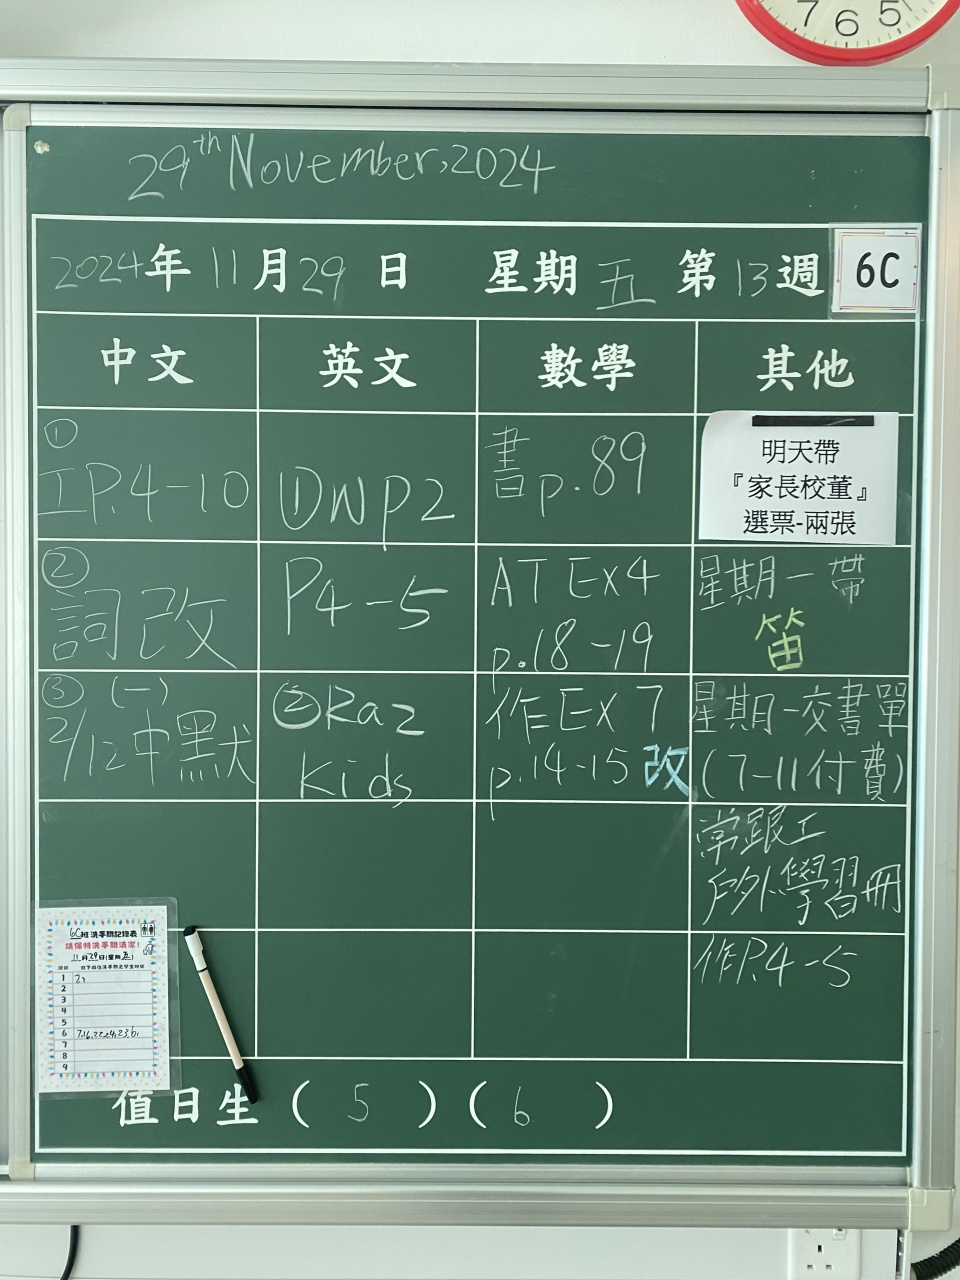 7 6 5
29th November, 2024
2024年 11月29日 星期五 第13週
6C
中文 英文 數學 其他
①
工P.4-10
①WP2
書p.89
明天帶
『家長校董』
選票-兩張
②
詞改
P4-5
AT Ex4
p.18-19
星期一帶
笛
③(一)
2/12中默
②Raz
Kids
作Ex 7
p.14-15改
星期一交書單
(7-11付費)
常跟工
戶外學習冊
作P.4-5
6C班洗手間記錄表
請保持洗手間清潔!
11月29日(星期五)
1 21
2
3
4
5
6 7,16,22,24,23,6,
7
8
9
值日生(5)(6)